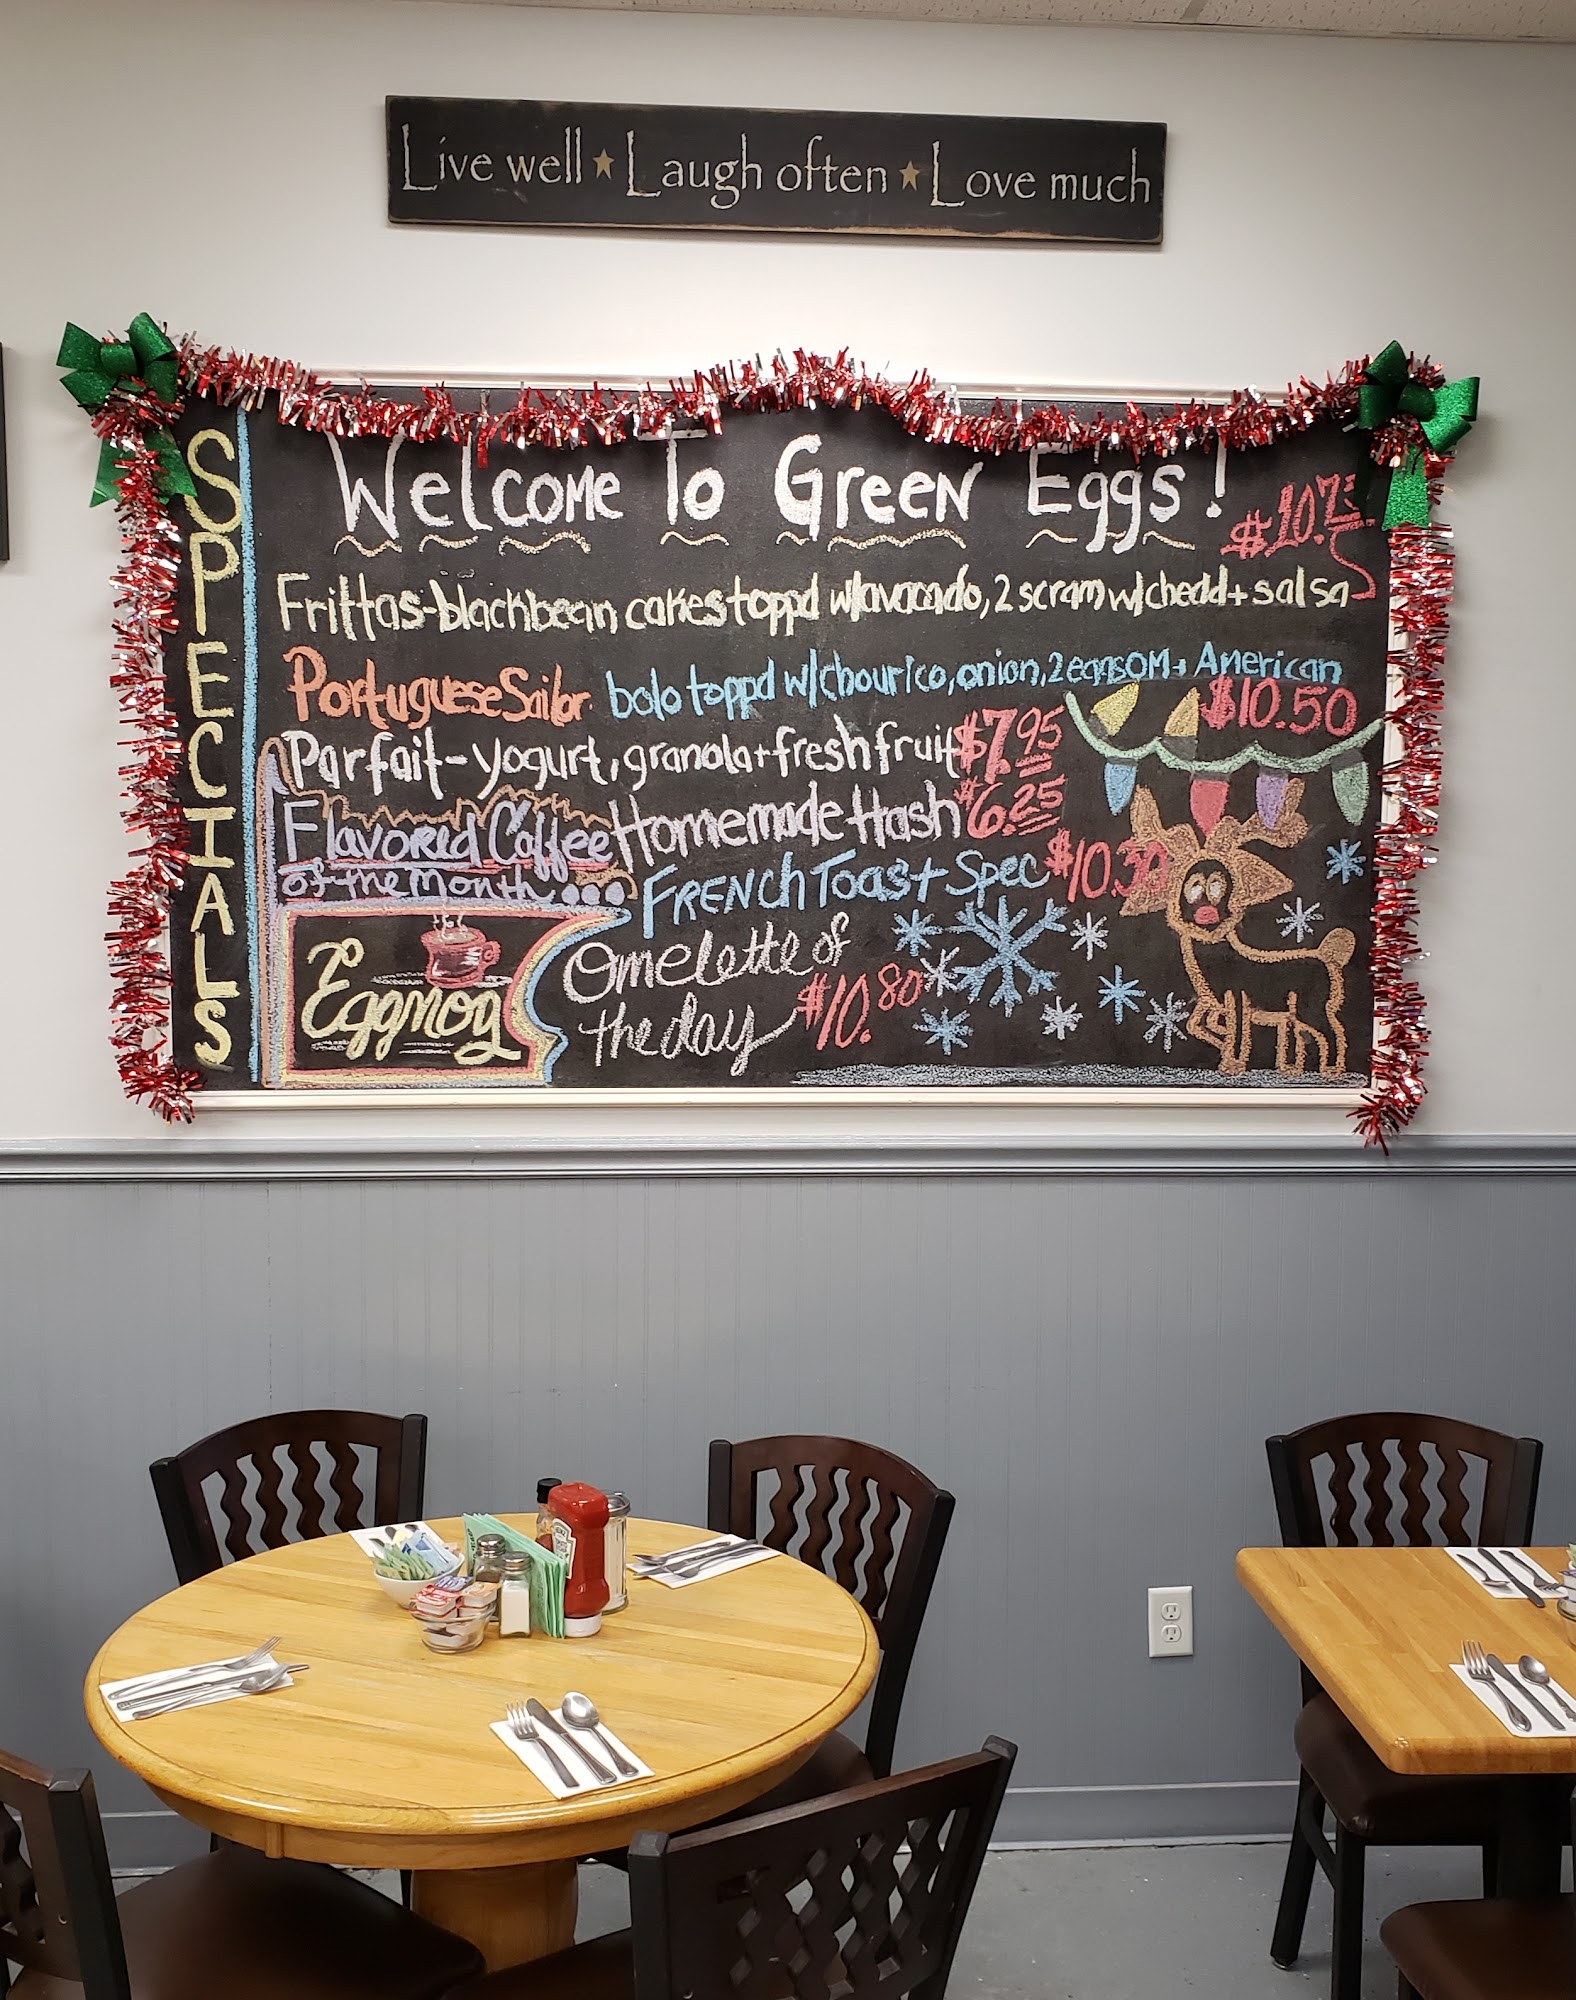 Live well ★ Laugh often ★ Love much
SPECIALS
Welcome To Green Eggs!
Frittas-blackbean cakes toppd w/avacado, 2 scram w/chedd+salsa
Portuguese Sailor bolo toppd w/chourico, onion, 2 eggs OM + American $10.50
Parfait-yogurt, granola+fresh fruit $7.95
Flavored Coffee
of the Month...
Eggnog
Homemade Hash $6.25
French Toast Spec $10.30
Omelette of
the day $10.80
HEINZ